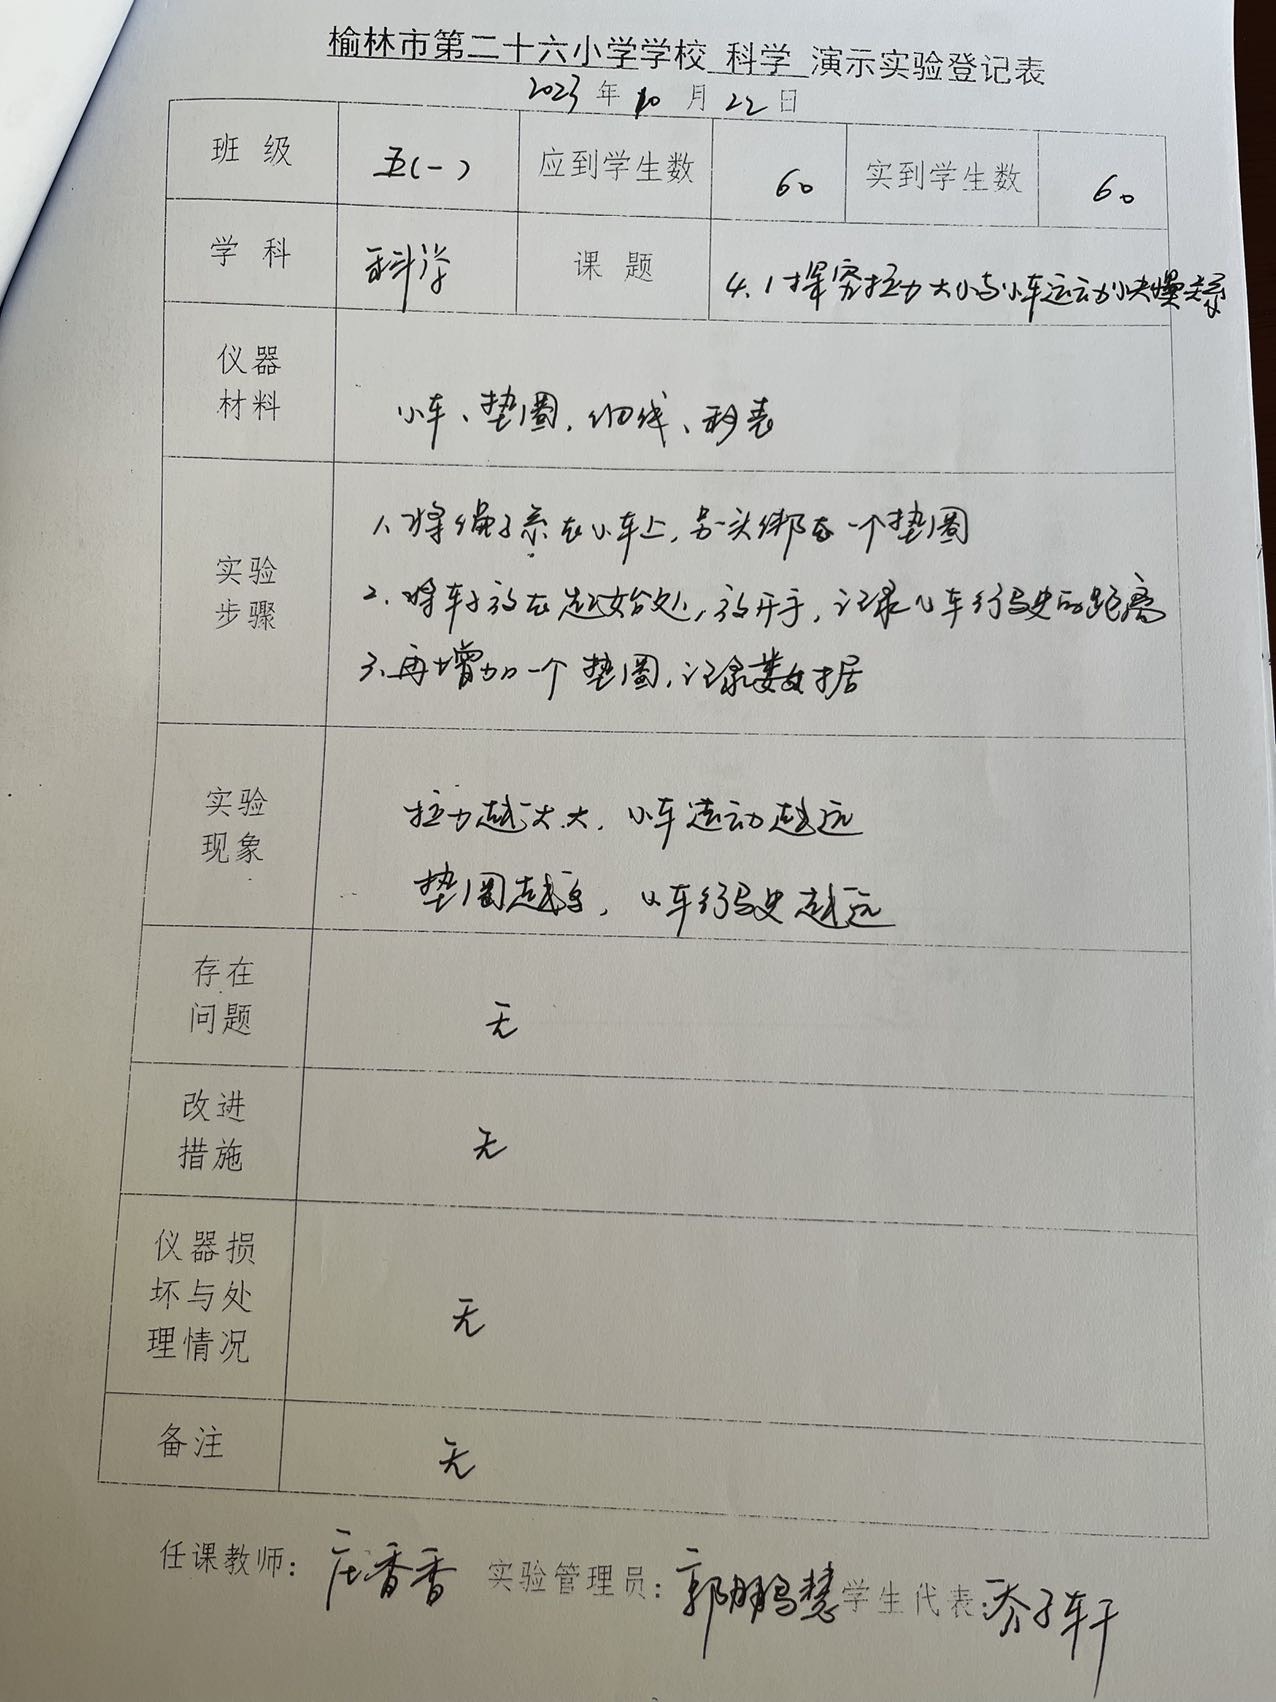 榆林市第二十六小学学校 科学 演示实验登记表
2023 年 10 月 22 日
班级 五(一) 应到学生数 60 实到学生数 60
学科 科学 课题 4.1探究拉力大小与小车运动快慢关系
仪器
材料
小车、垫圈、细线、秒表
实验
步骤
1、将绳子系在小车上，另一头绑在一个垫圈
2、将车子放在起始处，放开手，记录小车行驶的距离
3、再增加一个垫圈，记录数据
实验
现象
拉力越大，小车运动越远
垫圈越多，小车行驶越远
存在
问题
无
改进
措施
无
仪器损
坏与处
理情况
无
备注 无
任课教师： 庄香香 实验管理员： 郭鹏慧 学生代表： 子轩